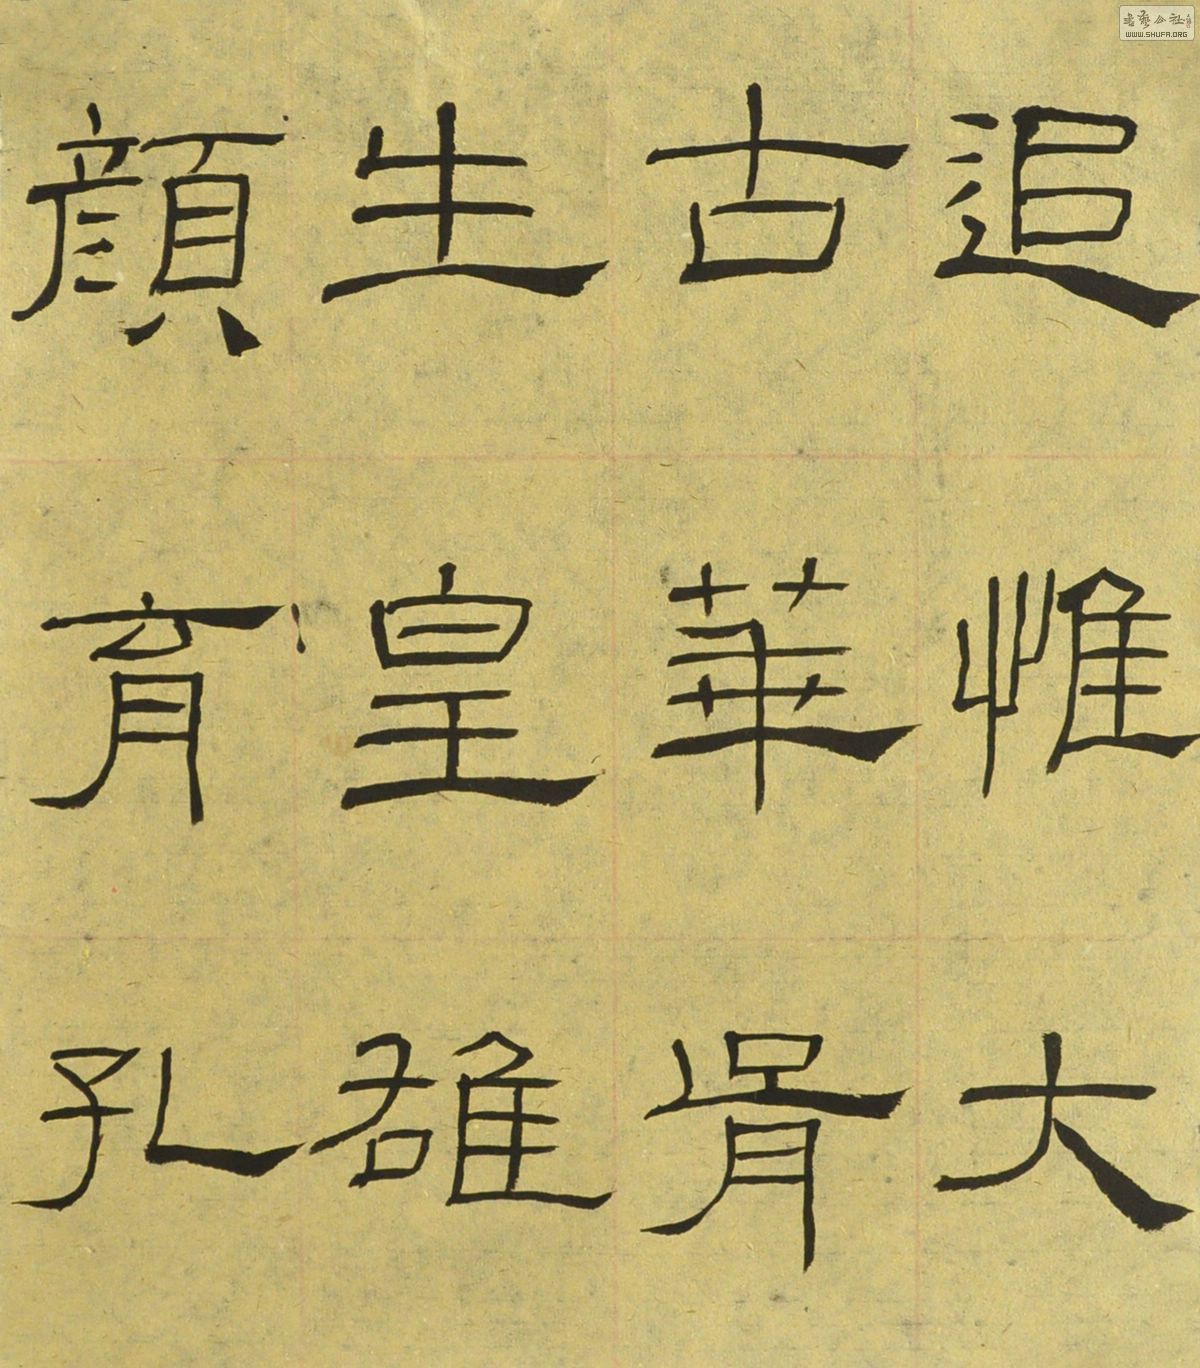 追惟大
古華胥
生皇雄
顏育孔
書藝公社
WWW.SHUFA.ORG